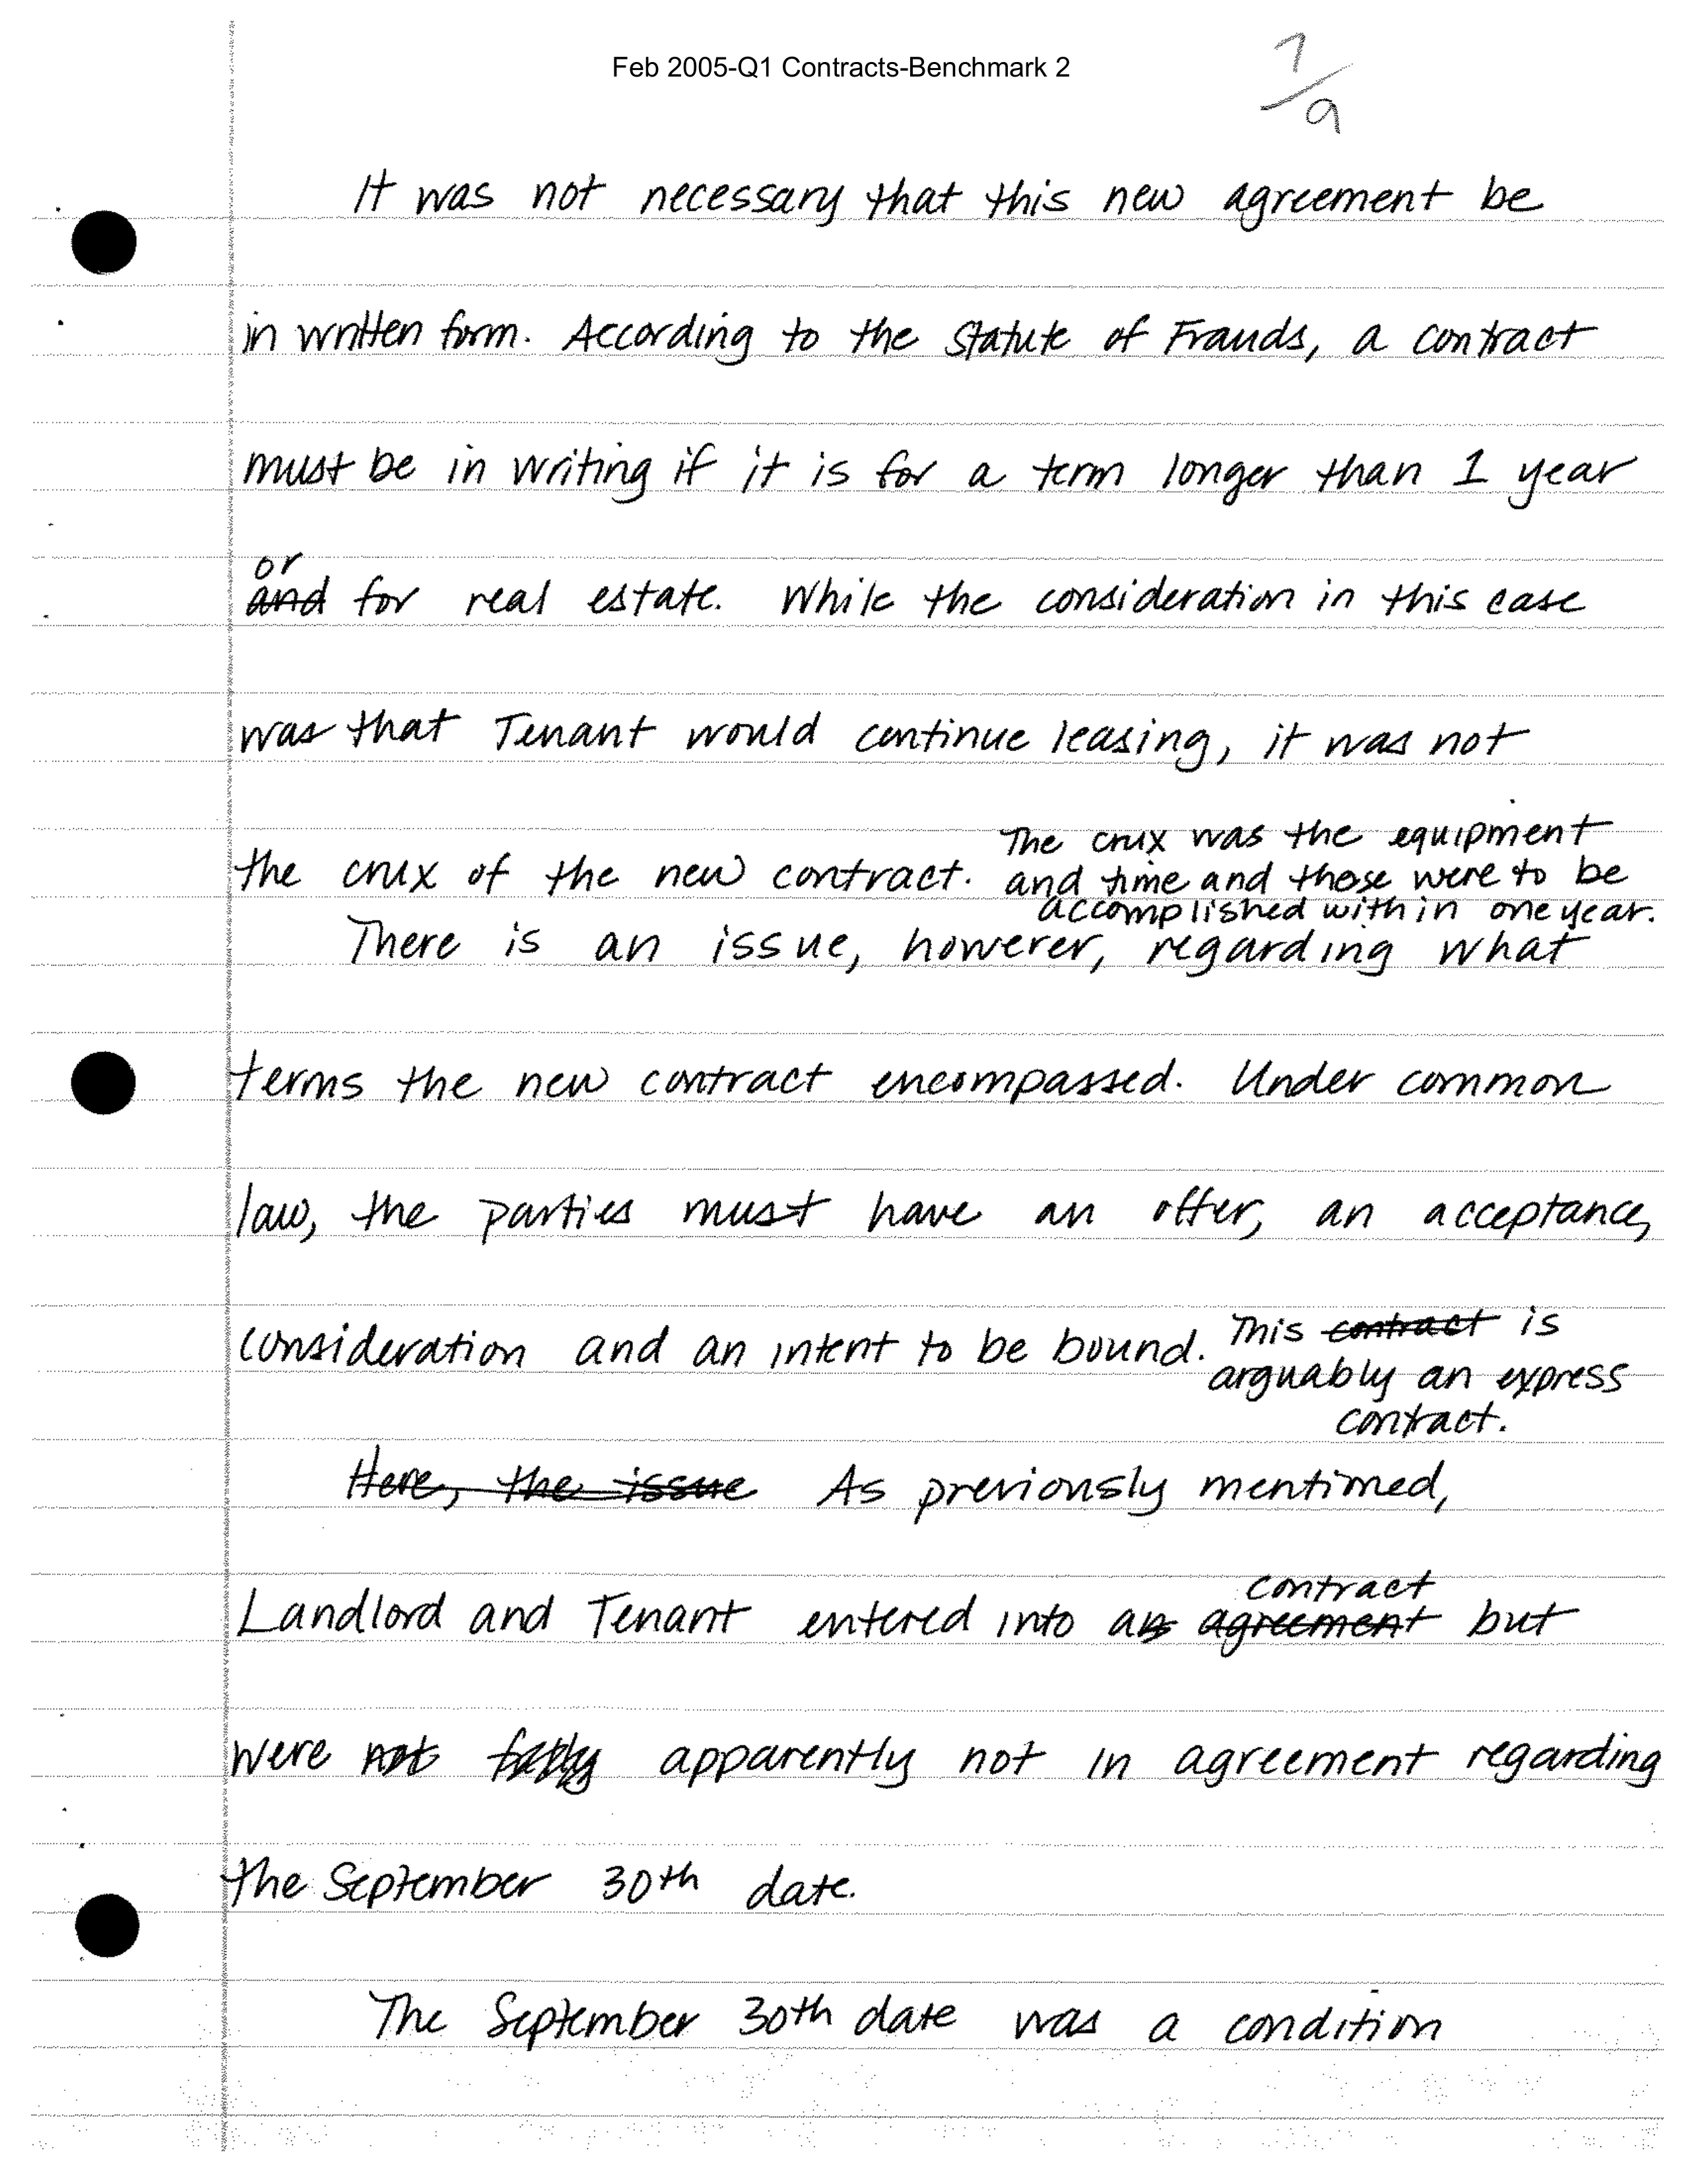 Feb 2005-Q1 Contracts-Benchmark 2
7/9
It was not necessary that this new agreement be
in written form. According to the Statute of Frauds, a contract
must be in writing if it is for a term longer than 1 year
or
and for real estate. While the consideration in this case
was that Tenant would continue leasing, it was not
the crux of the new contract. The crux was the equipment
and time and those were to be
accomplished within one year.
There is an issue, however, regarding what
terms the new contract encompassed. Under common
law, the parties must have an offer, an acceptance,
consideration and an intent to be bound. This contract is
arguably an express
contract.
Here, the issue As previously mentioned,
contract
Landlord and Tenant entered into an agreement but
were not apparently not in agreement regarding
the September 30th date.
The September 30th date was a condition